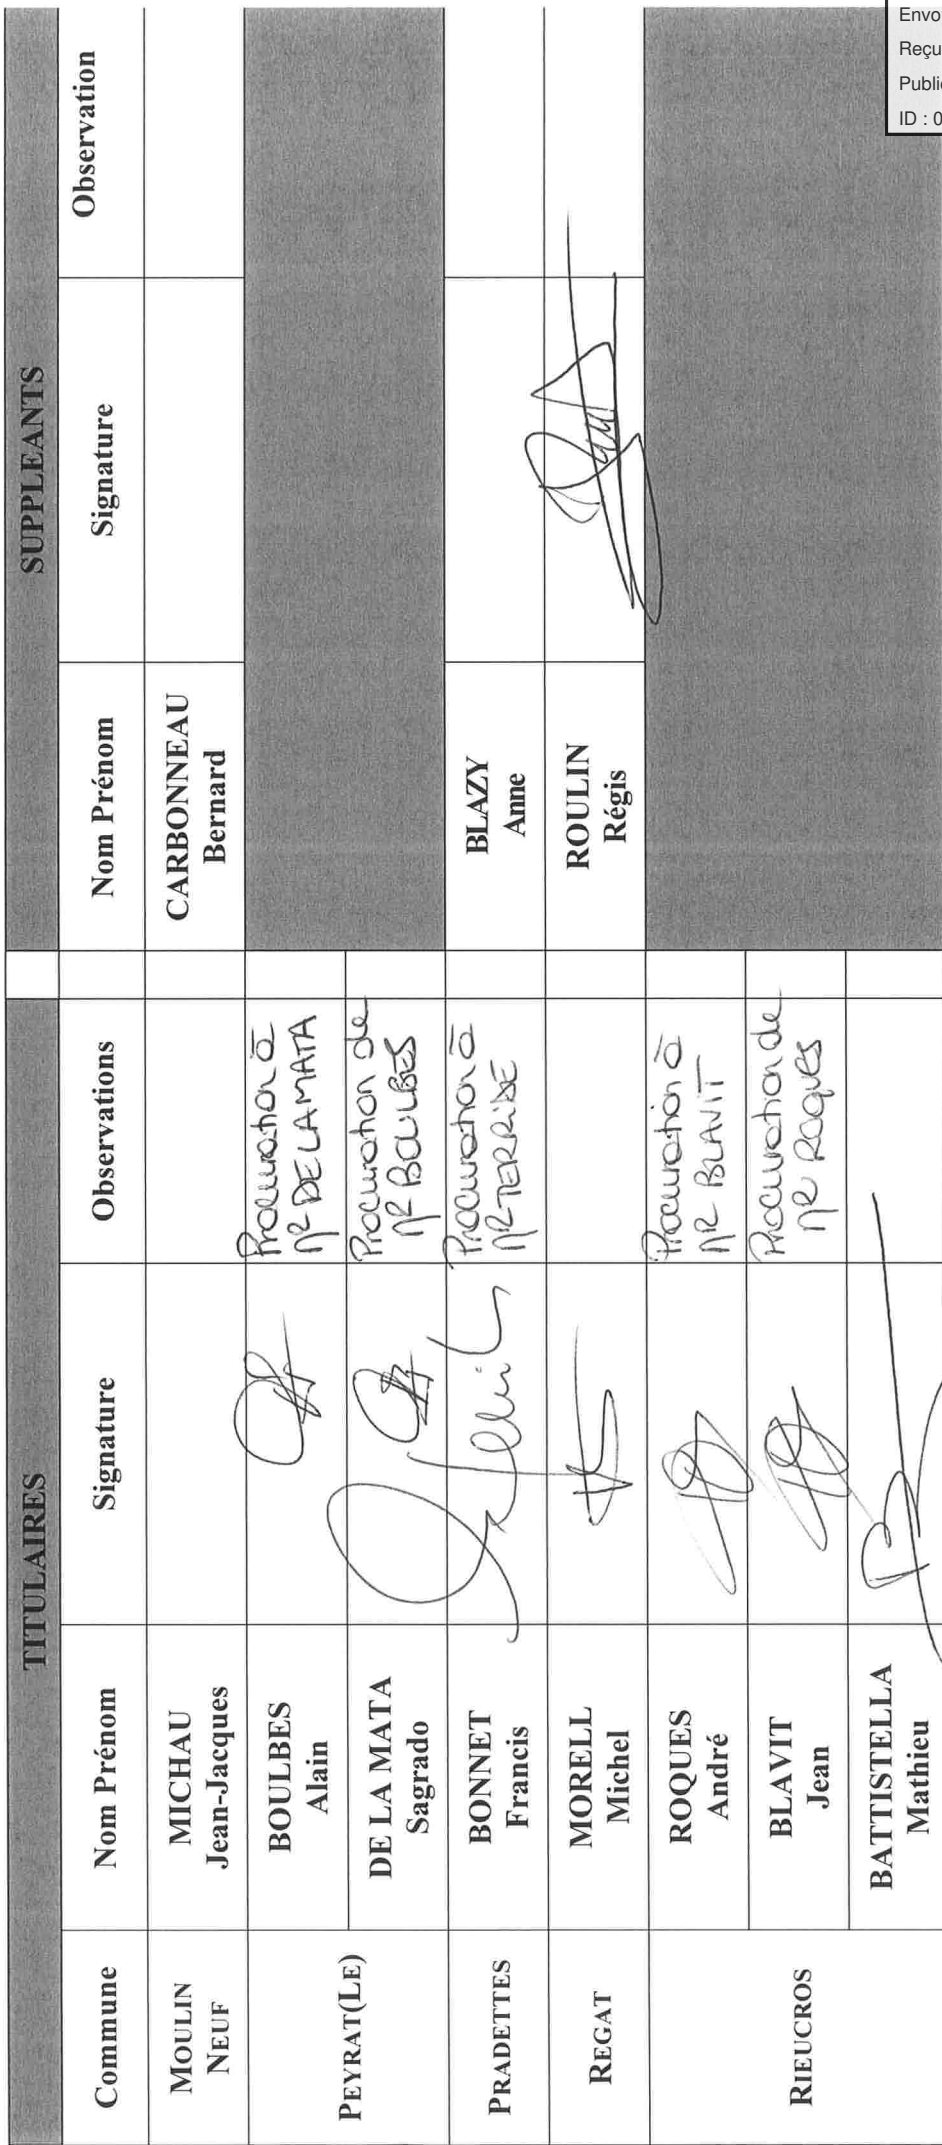 Envo
Reçu
Public
ID : 0
TITULAIRES SUPPLEANTS
Commune Nom Prénom Signature Observations Nom Prénom Signature Observation
MOULIN
NEUF
MICHAU
Jean-Jacques
CARBONNEAU
Bernard
PEYRAT(LE)
BOULBES
Alain
Procuration à
MR DE LA MATA
DE LA MATA
Sagrado
Procuration de
MR BOULBES
PRADETTES
BONNET
Francis
Procuration à
MR TERRISSE
BLAZY
Anne
REGAT
MORELL
Michel
ROULIN
Régis
RIEUCROS
ROQUES
André
Procuration à
MR BLAVIT
BLAVIT
Jean
Procuration de
MR ROQUES
BATTISTELLA
Mathieu